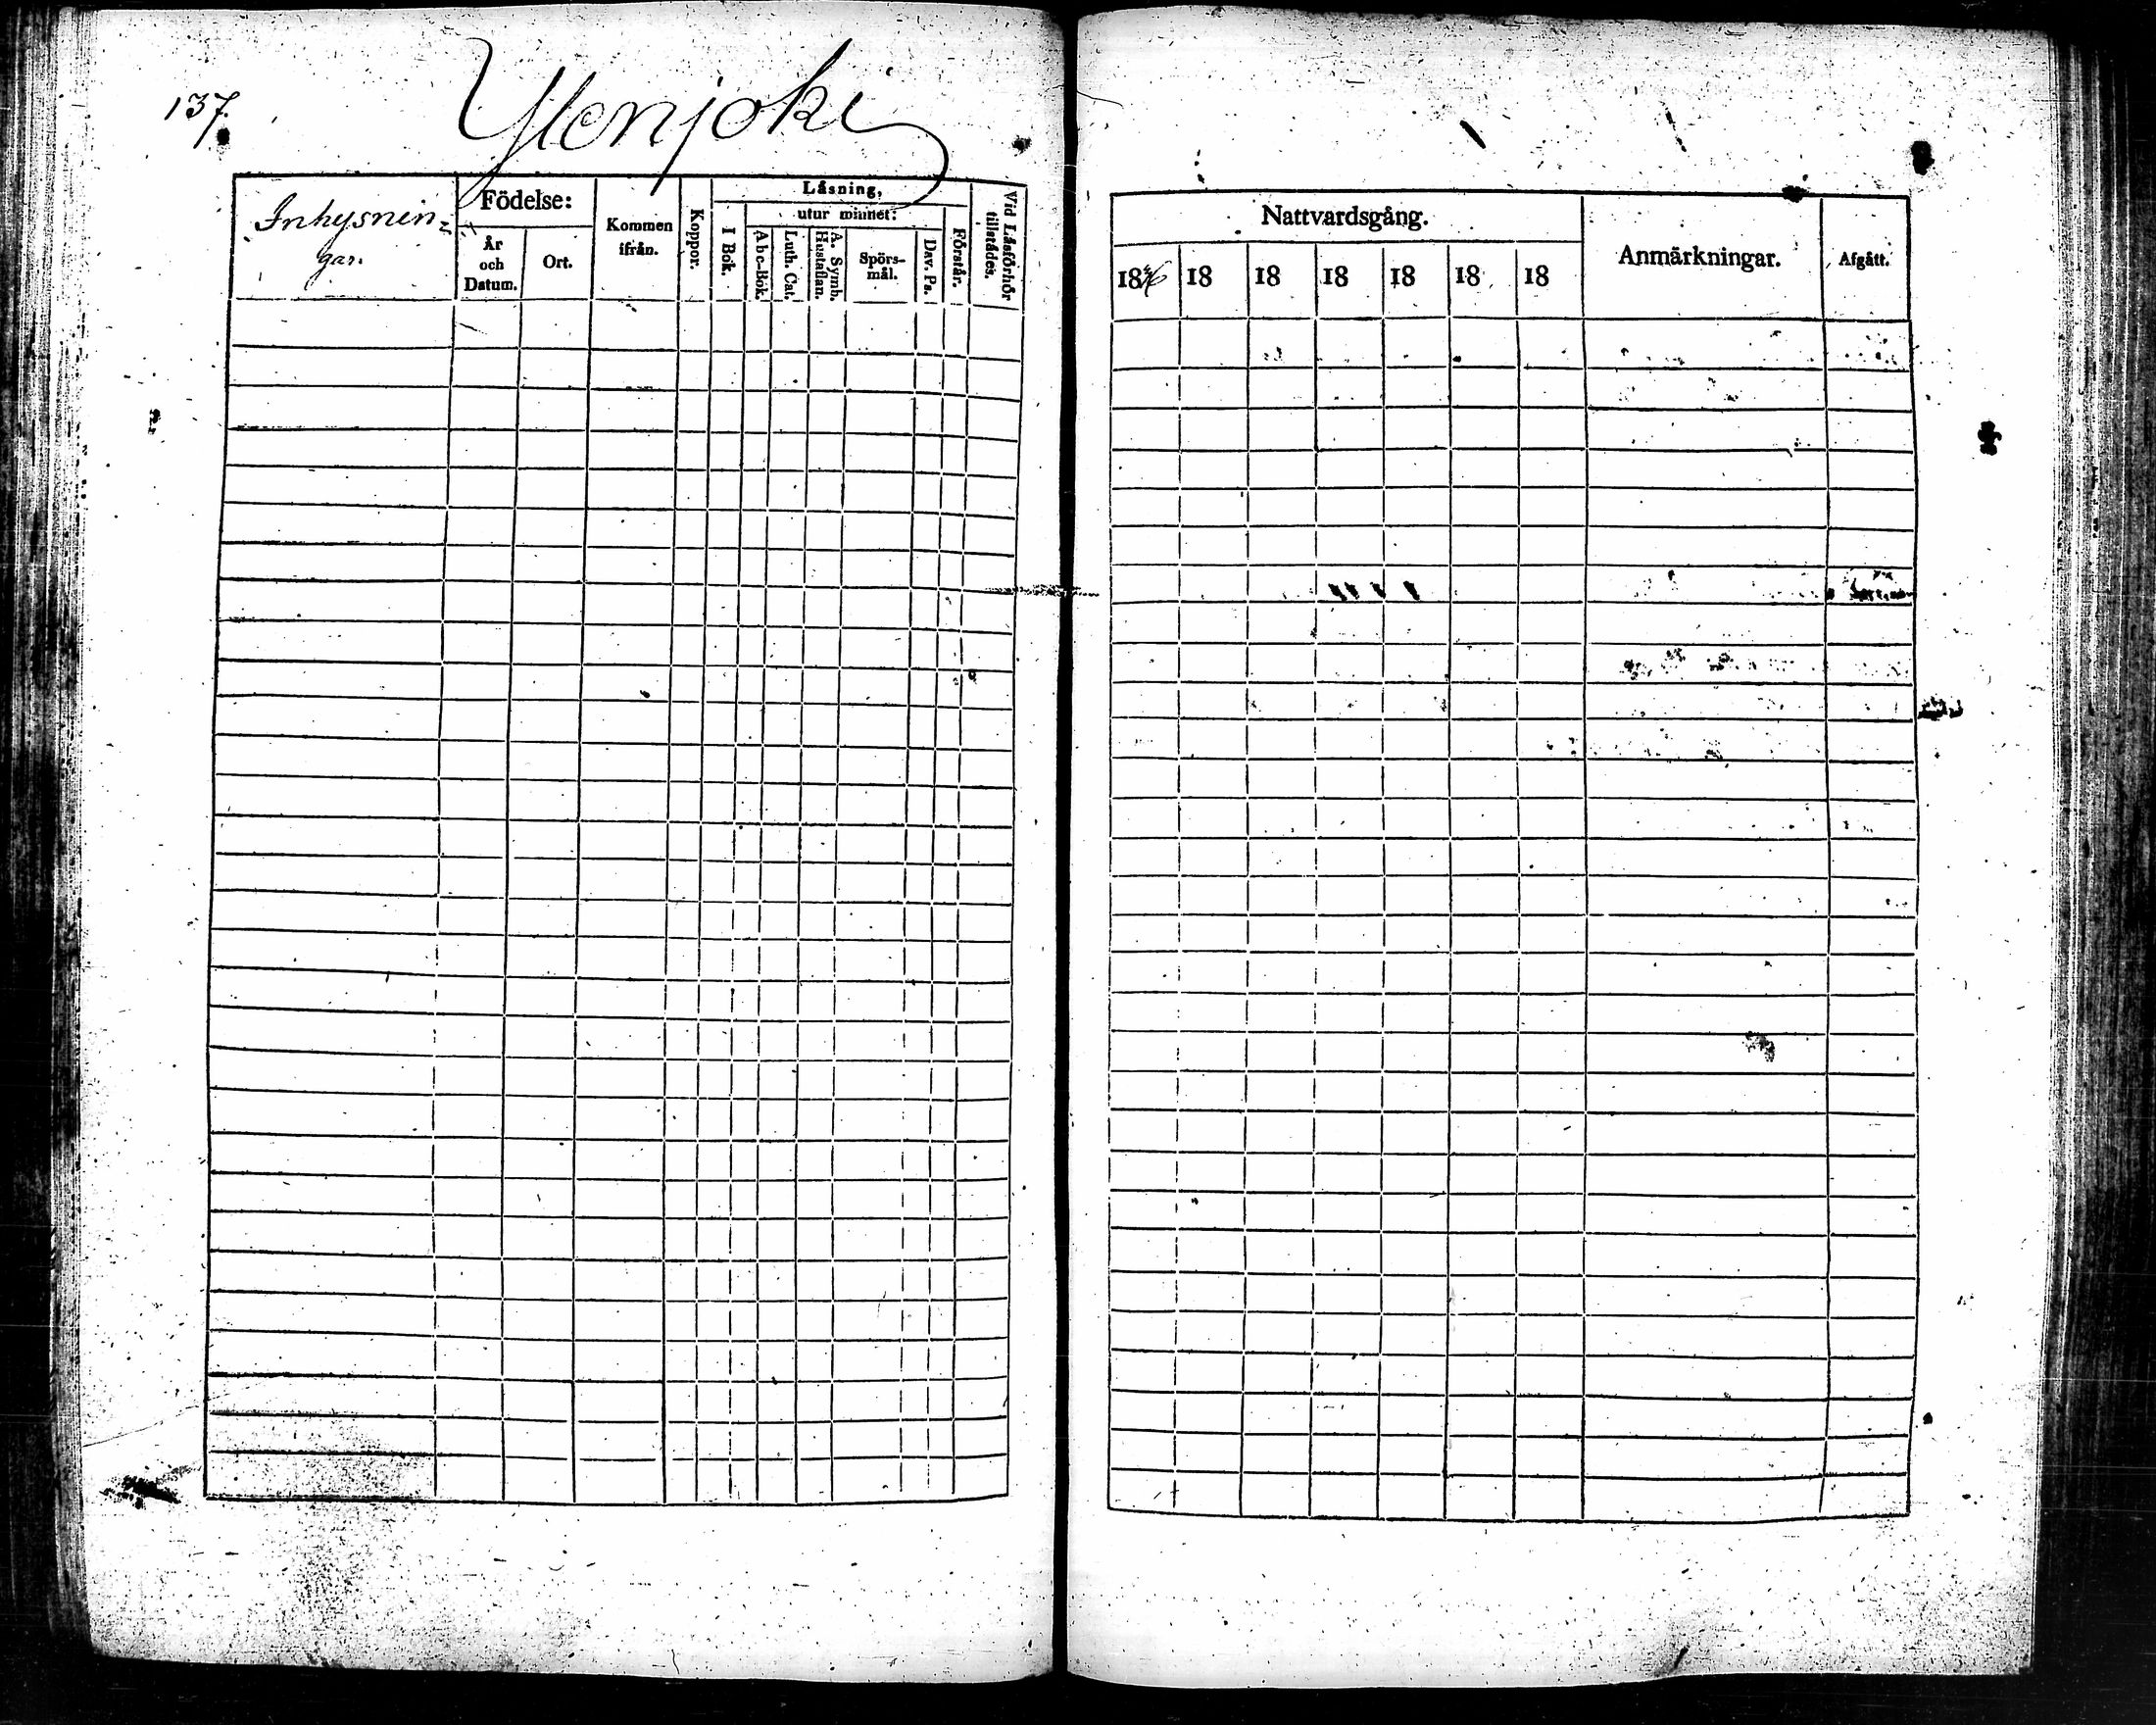 137.
Ylenjoki
Inhysnin=
gar.
Födelse:
År
och
Datum.
Ort.
Kommen
ifrån.
Koppor.
Läsning,
I Bok.
utur minnet:
Abc-Bok.
Luth. Cat.
A. Symb.
Hustaflan.
Spörs-
mål.
Dav. Ps.
Förstår.
Vid Läsförhör
tillstädes.
Nattvardsgång.
1836 18 18 18 18 18 18
Anmärkningar.
Afgått.